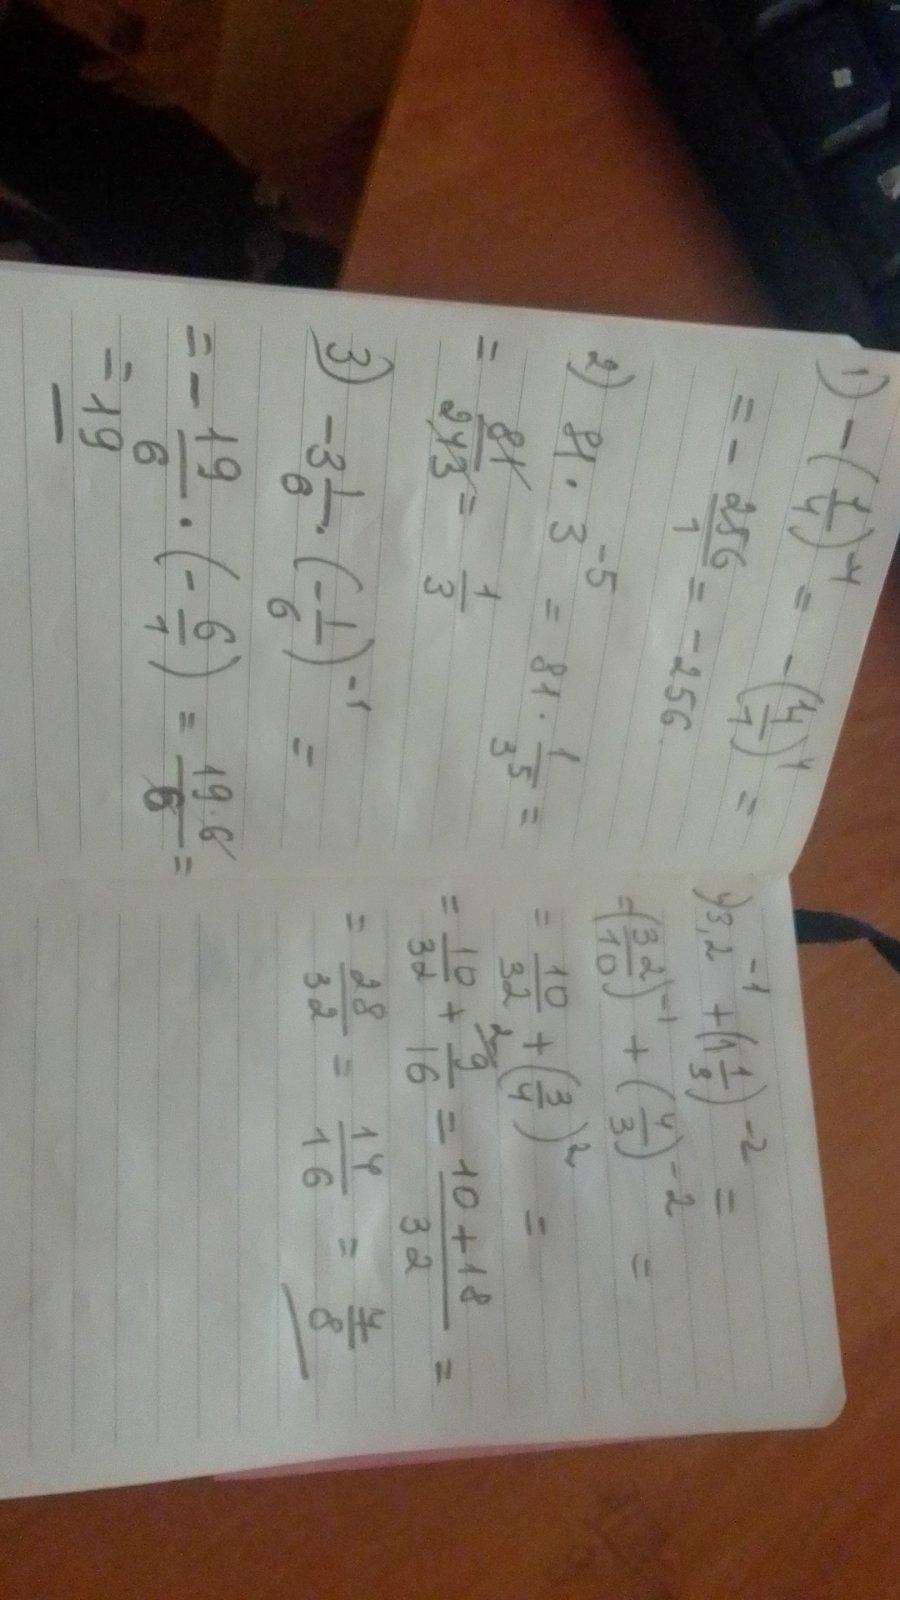 1) -(1/4)^-4 = -(4/1)^4 =
= - 256/1 = -256.
2) 81 · 3^-5 = 81 · 1/3^5 =
= 81/243 = 1/3
3) -3 1/6 · (-1/6)^-1 =
= - 19/6 · (-6/1) = 19·6/6 =
= 19
4) 3,2^-1 + (1 1/3)^-2 =
= (32/10)^-1 + (4/3)^-2 =
= 10/32 + (3/4)^2 =
= 10/32 + 2 9/16 = 10+18/32 =
= 28/32 = 14/16 = 7/8